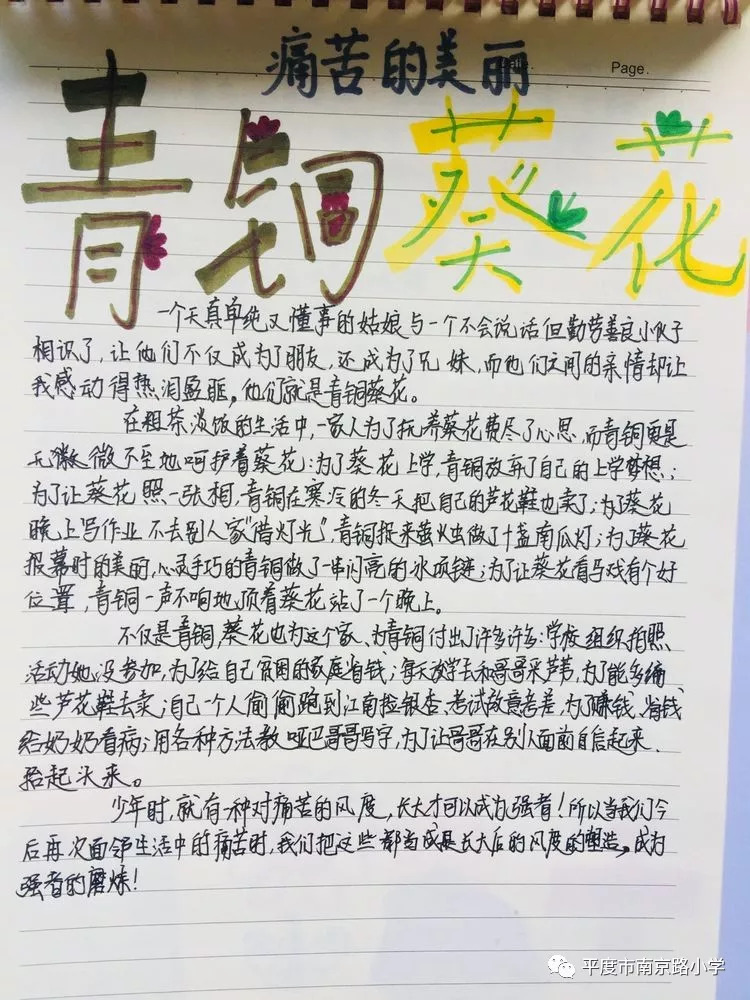 痛苦的美丽
Page.
青铜葵花
一个天真单纯又懂事的姑娘与一个不会说话但勤劳善良小伙子
相识了，让他们不仅成为了朋友，还成为了兄妹，而他们之间的亲情却让
我感动得热泪盈眶。他们就是青铜葵花。
在粗茶淡饭的生活中，一家人为了抚养葵花费尽了心思，而青铜更是
无微不至地呵护着葵花：为了葵花上学，青铜放弃了自己的上学梦想；
为了让葵花照一张相，青铜在寒冷的冬天把自己的芦花鞋也卖了；为了葵花
晚上写作业不去别人家"借灯光"，青铜捉来萤火虫做了十盏南瓜灯；为了葵花
报幕时的美丽，心灵手巧的青铜做了一串闪亮的冰项链；为了让葵花看马戏有个好
位置，青铜一声不响地顶着葵花站了一个晚上。
不仅是青铜，葵花也为这个家、为青铜付出了许多许多：学校组织拍照
活动她没参加，为了给自己贫困的家庭省钱；每天放学去和哥哥采芦苇，为了能多编
些芦花鞋去卖；自己一个人偷偷跑到江南捡银杏、考试故意考差，为了赚钱、省钱
给奶奶看病；用各种方法教哑巴哥哥写字，为了让哥哥在别人面前自信起来、
抬起头来。
少年时，就有一种对痛苦的风度，长大才可以成为强者！所以当我们今
后再次面邻生活中的痛苦时，我们把这些都当成是长大后的风度的塑造，成为
强者的磨炼！
平度市南京路小学